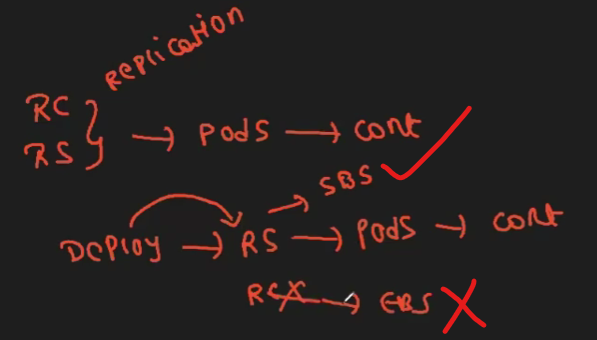 Replication
RC
RS } → Pods → cont
→ SBS ✓
Deploy → RS → Pods → cont
RC X → EBS X